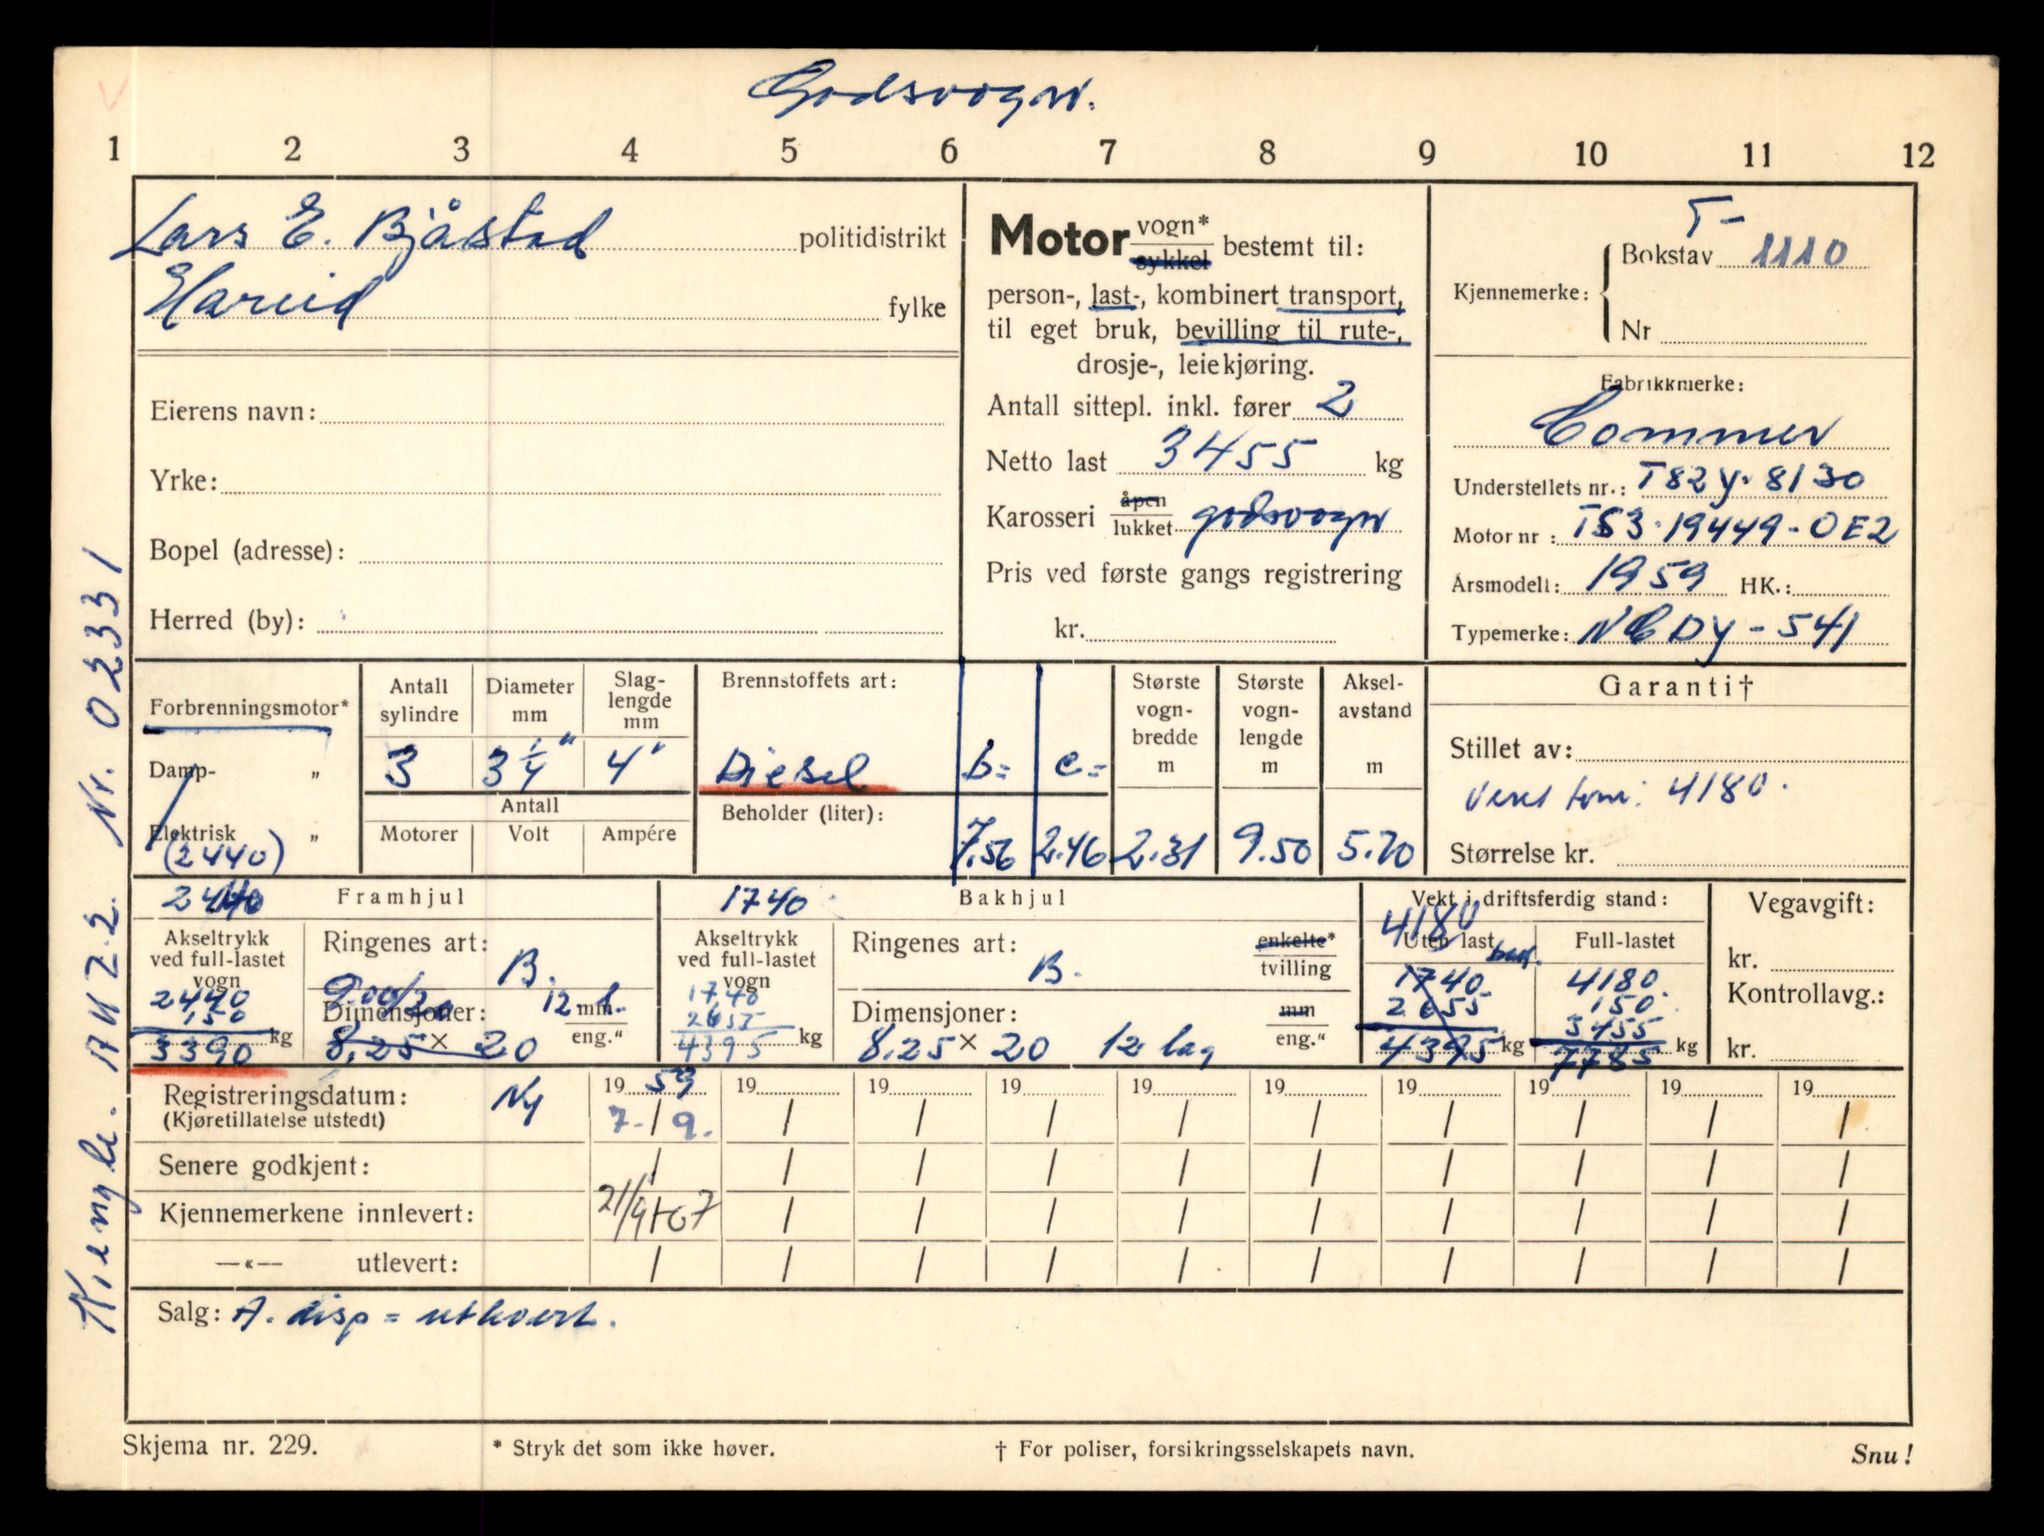 Godsvogn.
1 2 3 4 5 6 7 8 9 10 11 12
Lars E. Bjåstad politidistrikt
Hareid fylke
Eierens navn:
Yrke:
Bopel (adresse):
Herred (by):
Motor vogn* sykkel bestemt til:
person-, last-, kombinert transport,
til eget bruk, bevilling til rute-,
drosje-, leiekjøring.
Antall sittepl. inkl. fører 2
Netto last 3455 kg
Karosseri åpen lukket godsvogn
Pris ved første gangs registrering
kr.
T-
Kjennemerke: Bokstav 1110
Nr
Fabrikkmerke:
Commer
Understellets nr.: T82Y.8130
Motor nr: TS3.19449-OE2
Årsmodell: 1959 HK.:
Typemerke: NCDY-541
Kienzle. AU22. Nr. 02331
Forbrenningsmotor*
Damp- „
Elektrisk „
(2440)
Antall sylindre
3
Diameter mm
3 1/4"
Slag-lengde mm
4"
Antall
Motorer Volt Ampére
Brennstoffets art:
Diesel
Beholder (liter):
b= 7.56
c= 2.46
Største vogn-bredde m
2.31
Største vogn-lengde m
9.50
Aksel-avstand m
5.70
Garanti†
Stillet av:
4180.
Størrelse kr.
2440 Framhjul
Akseltrykk ved full-lastet vogn
2440
150
3390 kg
Ringenes art: B.
900/20 12 l.
Dimensjoner: mm eng."
8,25 × 20
1740 Bakhjul
Akseltrykk ved full-lastet vogn
1740
2655
4395 kg
Ringenes art: B. enkelte* tvilling
Dimensjoner: mm eng."
8.25 × 20 12 lag
Vekt i driftsferdig stand:
4180
Uten last
bak.
1740
2655
4395 kg
Full-lastet
4180.
150.
3455
7785 kg
Vegavgift:
kr.
Kontrollavg.:
kr.
Registreringsdatum: Ny 19 59 19 19 19 19 19 19 19 19 19
(Kjøretillatelse utstedt) 7./9. / / / / / / / / /
Senere godkjent: / / / / / / / / / /
Kjennemerkene innlevert: 21/9-67 / / / / / / / / /
—«— utlevert: / / / / / / / / / /
Salg: A. disp = utkvert.
Skjema nr. 229. * Stryk det som ikke høver. † For poliser, forsikringsselskapets navn. Snu!